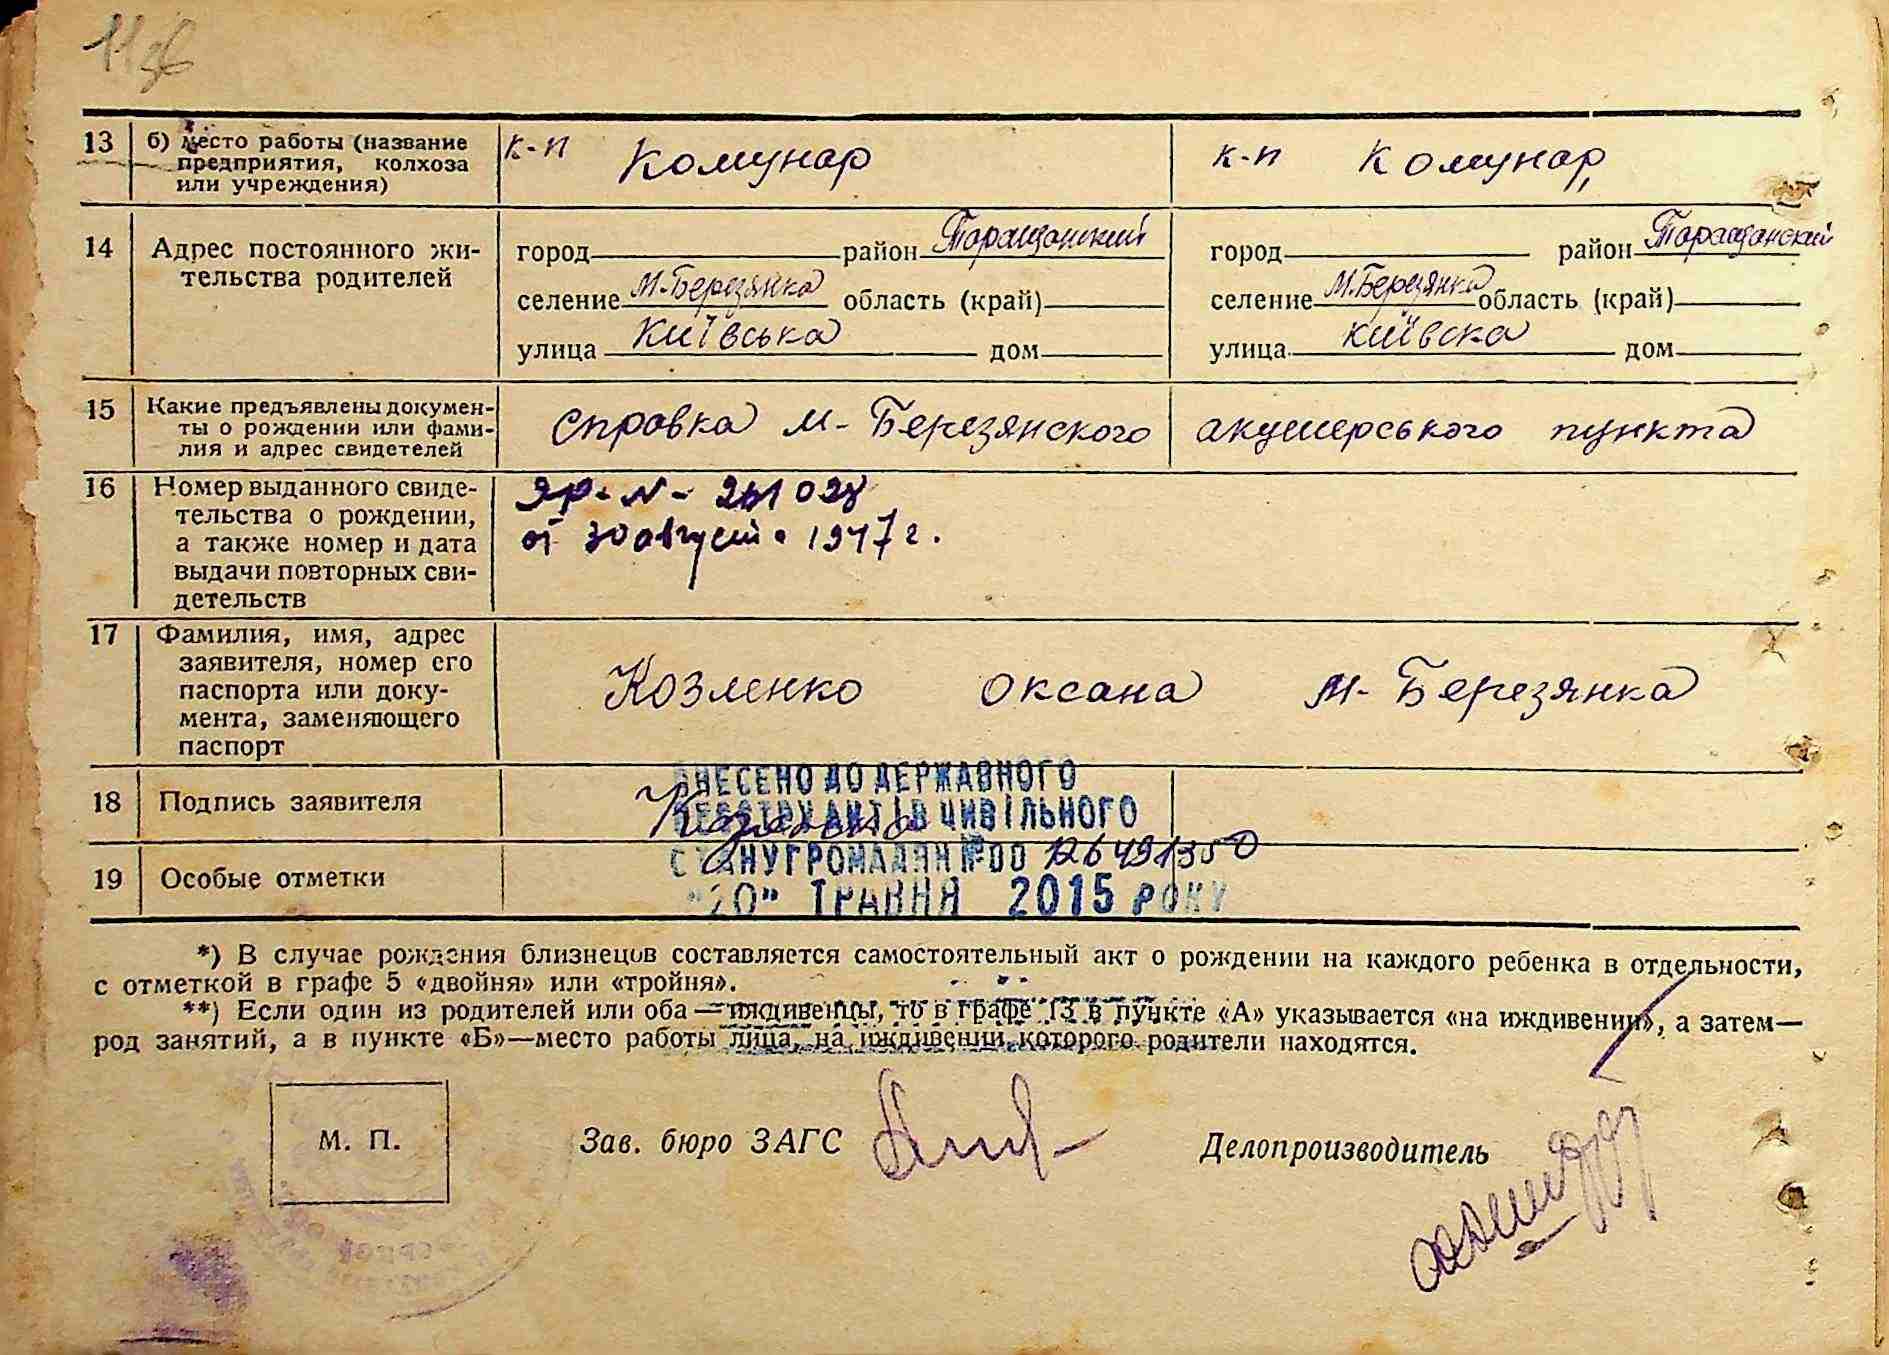 11зв
13 б) место работы (название предприятия, колхоза или учреждения) к-п Комунар к-п Комунар
14 Адрес постоянного жительства родителей
город район Таращанский город район Таращанский
селение М.Березянка область (край) селение М.Березянка область (край)
улица Київська дом улица київска дом
15 Какие предъявлены документы о рождении или фамилия и адрес свидетелей справка м-Березянского акушерського пункта
16 Номер выданного свидетельства о рождении, а также номер и дата выдачи повторных свидетельств
от 30 август 1947 г.
17 Фамилия, имя, адрес заявителя, номер его паспорта или документа, заменяющего паспорт Козленко Оксана М-Березянка
18 Подпись заявителя Козленко
ВНЕСЕНО ДО ДЕРЖАВНОГО
РЕЄСТРУ АКТІВ ЦИВІЛЬНОГО
СТАНУ ГРОМАДЯН №00126491350
"20" ТРАВНЯ 2015 РОКУ
19 Особые отметки
*) В случае рождения близнецов составляется самостоятельный акт о рождении на каждого ребенка в отдельности,
с отметкой в графе 5 «двойня» или «тройня».
**) Если один из родителей или оба — иждивенцы, то в графе 13 в пункте «А» указывается «на иждивении», а затем—
род занятий, а в пункте «Б»—место работы лица, на иждивении которого родители находятся.
М. П. Зав. бюро ЗАГС Делопроизводитель